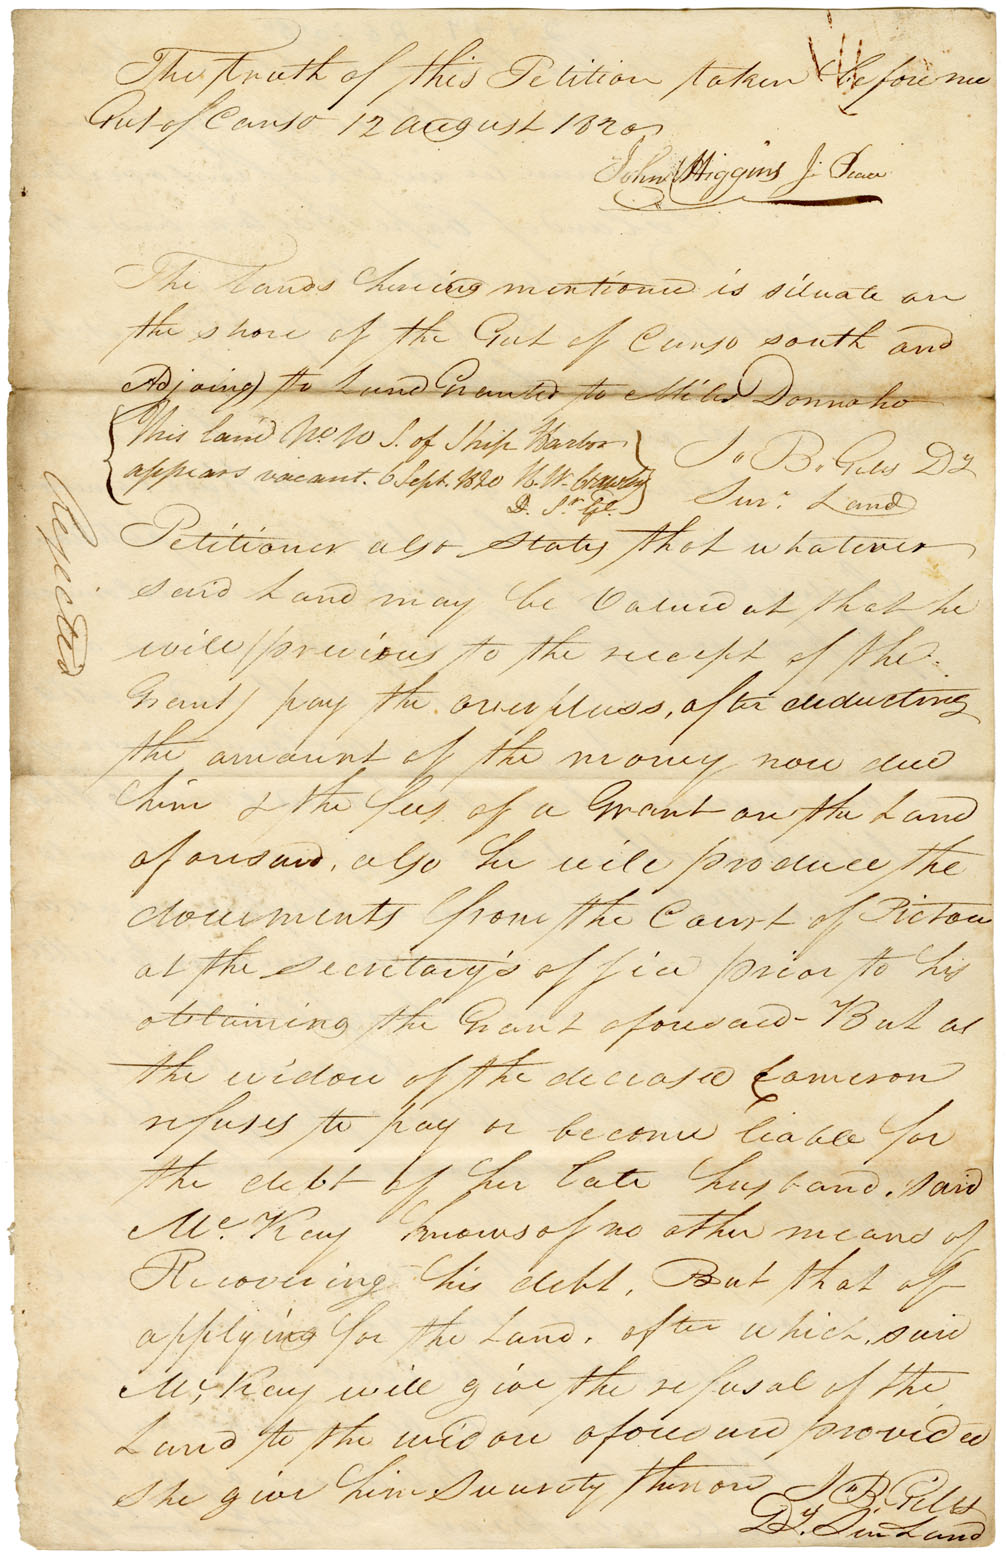 The truth of this Petition taken before me
Gut of Canso 12 August 1820
John Higgins J. Peace
The Lands herein mentioned is situate on
the shore of the Gut of Canso south and
Adjoing to Land Granted to Miles Donnaho
This land No. 10 S. of Ship Harbor
appears vacant. 6 Sept. 1820 H. W. Crawley
D. Sr. Gl.
Jo. B. Giles Dy
Surr. Land
Rejected
Petitioner also States that whatever
said Land may be Valued at that he
will previous to the receipt of the
Grant pay the overpluss, after deducting
the amount of the money now due
him & the fees of a Grant on the Land
aforesaid, also he will produce the
documents from the Court of Pictou
at the Secretary's office prior to his
obtaining the Grant aforesaid - But as
the widow of the deceased Cameron
refuses to pay or become liable for
the debt of her late husband, said
Mc. Kay knows of no other means of
Recovering his debt, But that of
applying for the Land. after which, said
Mc, Kay will give the refusal of the
Land to the widow aforesaid provided
she give him Security thereon Jo B. Giles
Dy. Sur Land